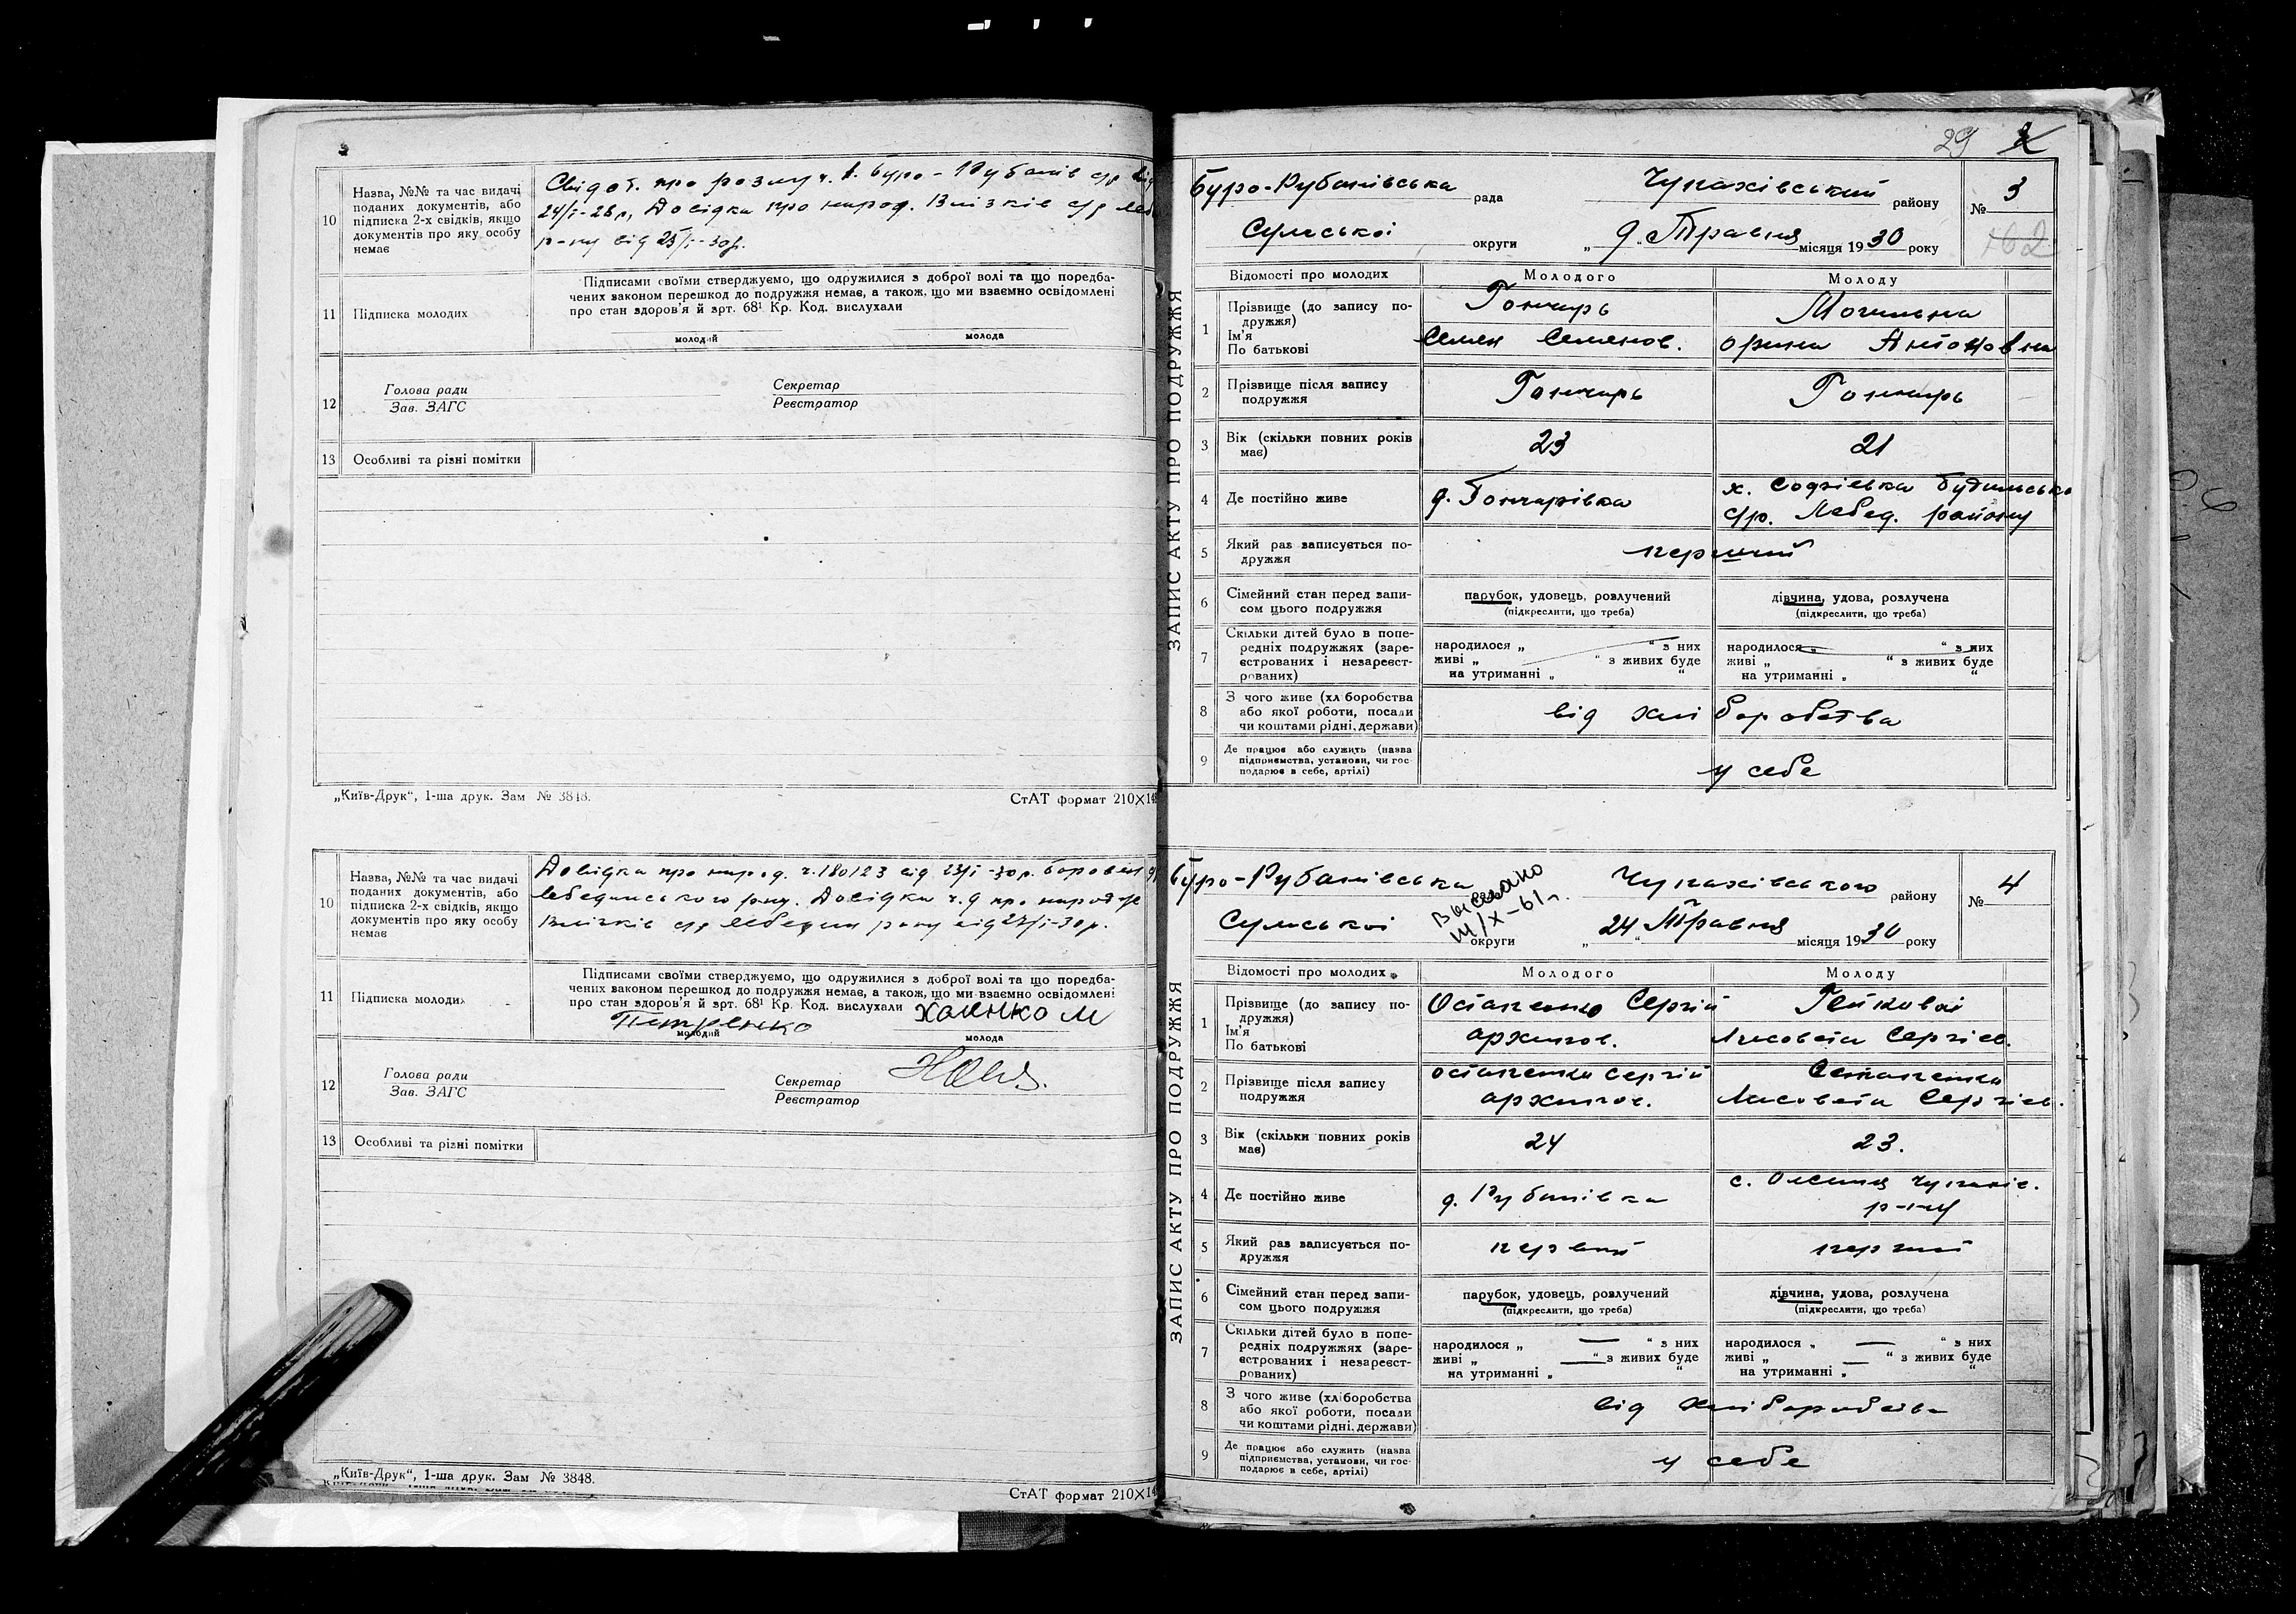 10
Назва, №№ та час видачі
поданих документів, або
підписка 2-х свідків, якщо
документів про яку особу
немає
Свідот. про розлуч. Буро-Рубанів с/р від
24/I-28 р, Довідка про народ. Влізків с/р Леб
р-ну від 23/I-30 р.
11
Підписка молодих
Підписами своїми стверджуємо, що одружилися з доброї волі та що поредба-
чених законом перешкод до подружжя немає, а також, що ми взаємно освідомлені
про стан здоров'я й зрт. 68¹ Кр. Код. вислухали
молодий
молода
12
Голова ради
Зав. ЗАГС
Секретар
Реєстратор
13
Особливі та різні помітки
„Київ-Друк“, 1-ша друк. Зам № 3848.
СтАТ формат 210×14
10
Назва, №№ та час видачі
поданих документів, або
підписка 2-х свідків, якщо
документів про яку особу
немає
Довідка про народ. ч. 180123 від 23/I-30 р.
Лебединського р-ну. Довідка ч. 9 про народ
с/р Лебедин р-ну від 27/I-30 р.
11
Підписка молодих
Підписами своїми стверджуємо, що одружилися з доброї волі та що поредба-
чених законом перешкод до подружжя немає, а також, що ми взаємно освідомлені
про стан здоров'я й зрт. 68¹ Кр. Код. вислухали
Петренко
молодий
молода
12
Голова ради
Зав. ЗАГС
Секретар
Реєстратор
13
Особливі та різні помітки
„Київ-Друк“, 1-ша друк. Зам № 3848.
СтАТ формат 210×14
29
ЗАПИС АКТУ ПРО ПОДРУЖЖЯ
Буро-Рубанівська рада Чупахівський району
№ 3
Сумської округи „9“ Травня місяця 1930 року
Відомості про молодих
Молодого
Молоду
1
Прізвище (до запису по-
дружжя)
Ім'я
По батькові
Гончарь
Семен Семенов.
Могильна
Орина Антоновна
2
Прізвище після запису
подружжя
Гончарь
Гончарь
3
Вік (скільки повних років
має)
23
21
4
Де постійно живе
д. Гончарівка
х. Софіевка
с/р. Лебед. району
5
Який раз записується по-
дружжя
перший
6
Сімейний стан перед запи-
сом цього подружжя
парубок, удовець, розлучений
(підкреслити, що треба)
дівчина, удова, розлучена
(підкреслити, що треба)
7
Скільки дітей було в попе-
редніх подружжях (заре-
єстрованих і незареєст-
рованих)
народилося „ “ з них
живі „ “ з живих буде
на утриманні „ “
народилося „ “ з них
живі „ “ з живих буде
на утриманні „ “
8
З чого живе (хліборобства
або якої роботи, посади
чи коштами рідні, держави)
від хліборобства
9
Де працює або служить (назва
підприємства, установи, чи гос-
подарює в себе, артілі)
у себе
ЗАПИС АКТУ ПРО ПОДРУЖЖЯ
Буро-Рубанівська рада Чупахівського району
№ 4
Сумської округи „24“ Травня місяця 1930 року
Выслано
Відомості про молодих
Молодого
Молоду
1
Прізвище (до запису по-
дружжя)
Ім'я
По батькові
Остапенко Сергій
Архипов.
Лисовета Сергіев.
2
Прізвище після запису
подружжя
Остапенко Сергій
Архипов.
Остапенко
Лисовета Сергіев.
3
Вік (скільки повних років
має)
24
23.
4
Де постійно живе
д. Рубанівка
с. Олешня Чупахів.
р-ну
5
Який раз записується по-
дружжя
первий
перший
6
Сімейний стан перед запи-
сом цього подружжя
парубок, удовець, розлучений
(підкреслити, що треба)
дівчина, удова, розлучена
(підкреслити, що треба)
7
Скільки дітей було в попе-
редніх подружжях (заре-
єстрованих і незареєст-
рованих)
народилося „ — “ з них
живі „ — “ з живих буде
на утриманні „ “
народилося „ — “ з них
живі „ — “ з живих буде
на утриманні „ “
8
З чого живе (хліборобства
або якої роботи, посади
чи коштами рідні, держави)
від хліборобства
9
Де працює або служить (назва
підприємства, установи, чи гос-
подарює в себе, артілі)
у себе